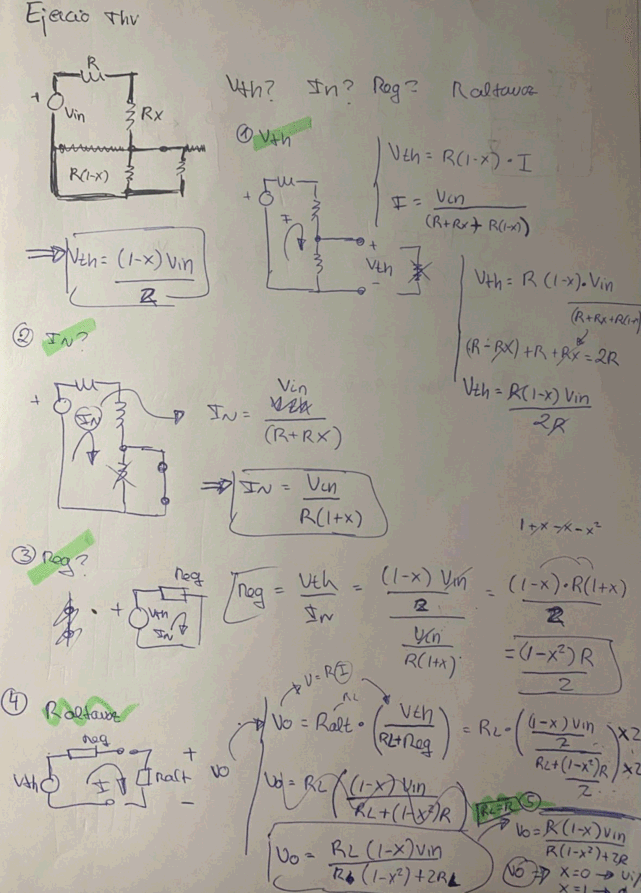 Ejercicio Thv
R
+
Vin
Rx
R(1-x)
Vth? In? Req? Raltavoz
① Vth
Vth = R(1-x) · I
I = Vin / (R+Rx+R(1-x))
+
I
+
Vth
-
⇒ Vth = (1-x) Vin / 2
Vth = R (1-x) · Vin / (R+Rx+R(1-x))
(R-RX)+R+RX = 2R
Vth = R(1-x) Vin / 2R
② IN?
+
IN
IN = Vin / (R+RX)
⇒ IN = Vin / R(1+x)
1+x-x-x²
③ Req?
+
Vth
Req
IN
Req = Vth / IN = (1-x) Vin / 2 / Vin / R(1+x) = (1-x)·R(1+x) / 2
= (1-x²)R / 2
④ Raltavoz
Req
Vth
I
Ralt
+
VO
-
V=R(I)
RL
Vo = Ralt · (Vth / RL+Req) = RL · ((1-x) Vin / 2 / RL+(1-x²)R / 2) x2 x2
Vo = RL ((1-x) Vin / RL+(1-x²)R)
Vo = RL (1-x) Vin / (1-x²)+2RL
RL=R ⑤
Vo = R(1-x) Vin / R(1-x²)+2R
VO ⇒ x=0 →
x=1 →